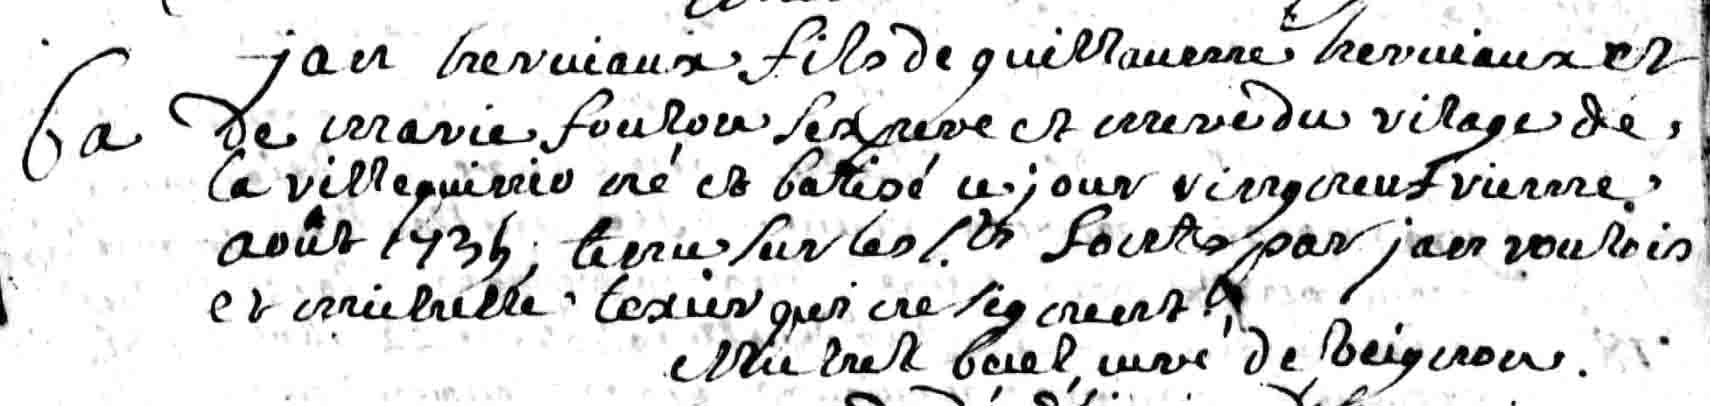 jan herviaux fils de guillaueme herviaux et
ba de marie foulon ses pere et mere du vilage de
la villeguinio né et batisé ce jour vingneufvieme
août 1735, tenu sur les s.ts fonts par jan
et michelle texier qui ne signent
Michel bouel curé de beignon.